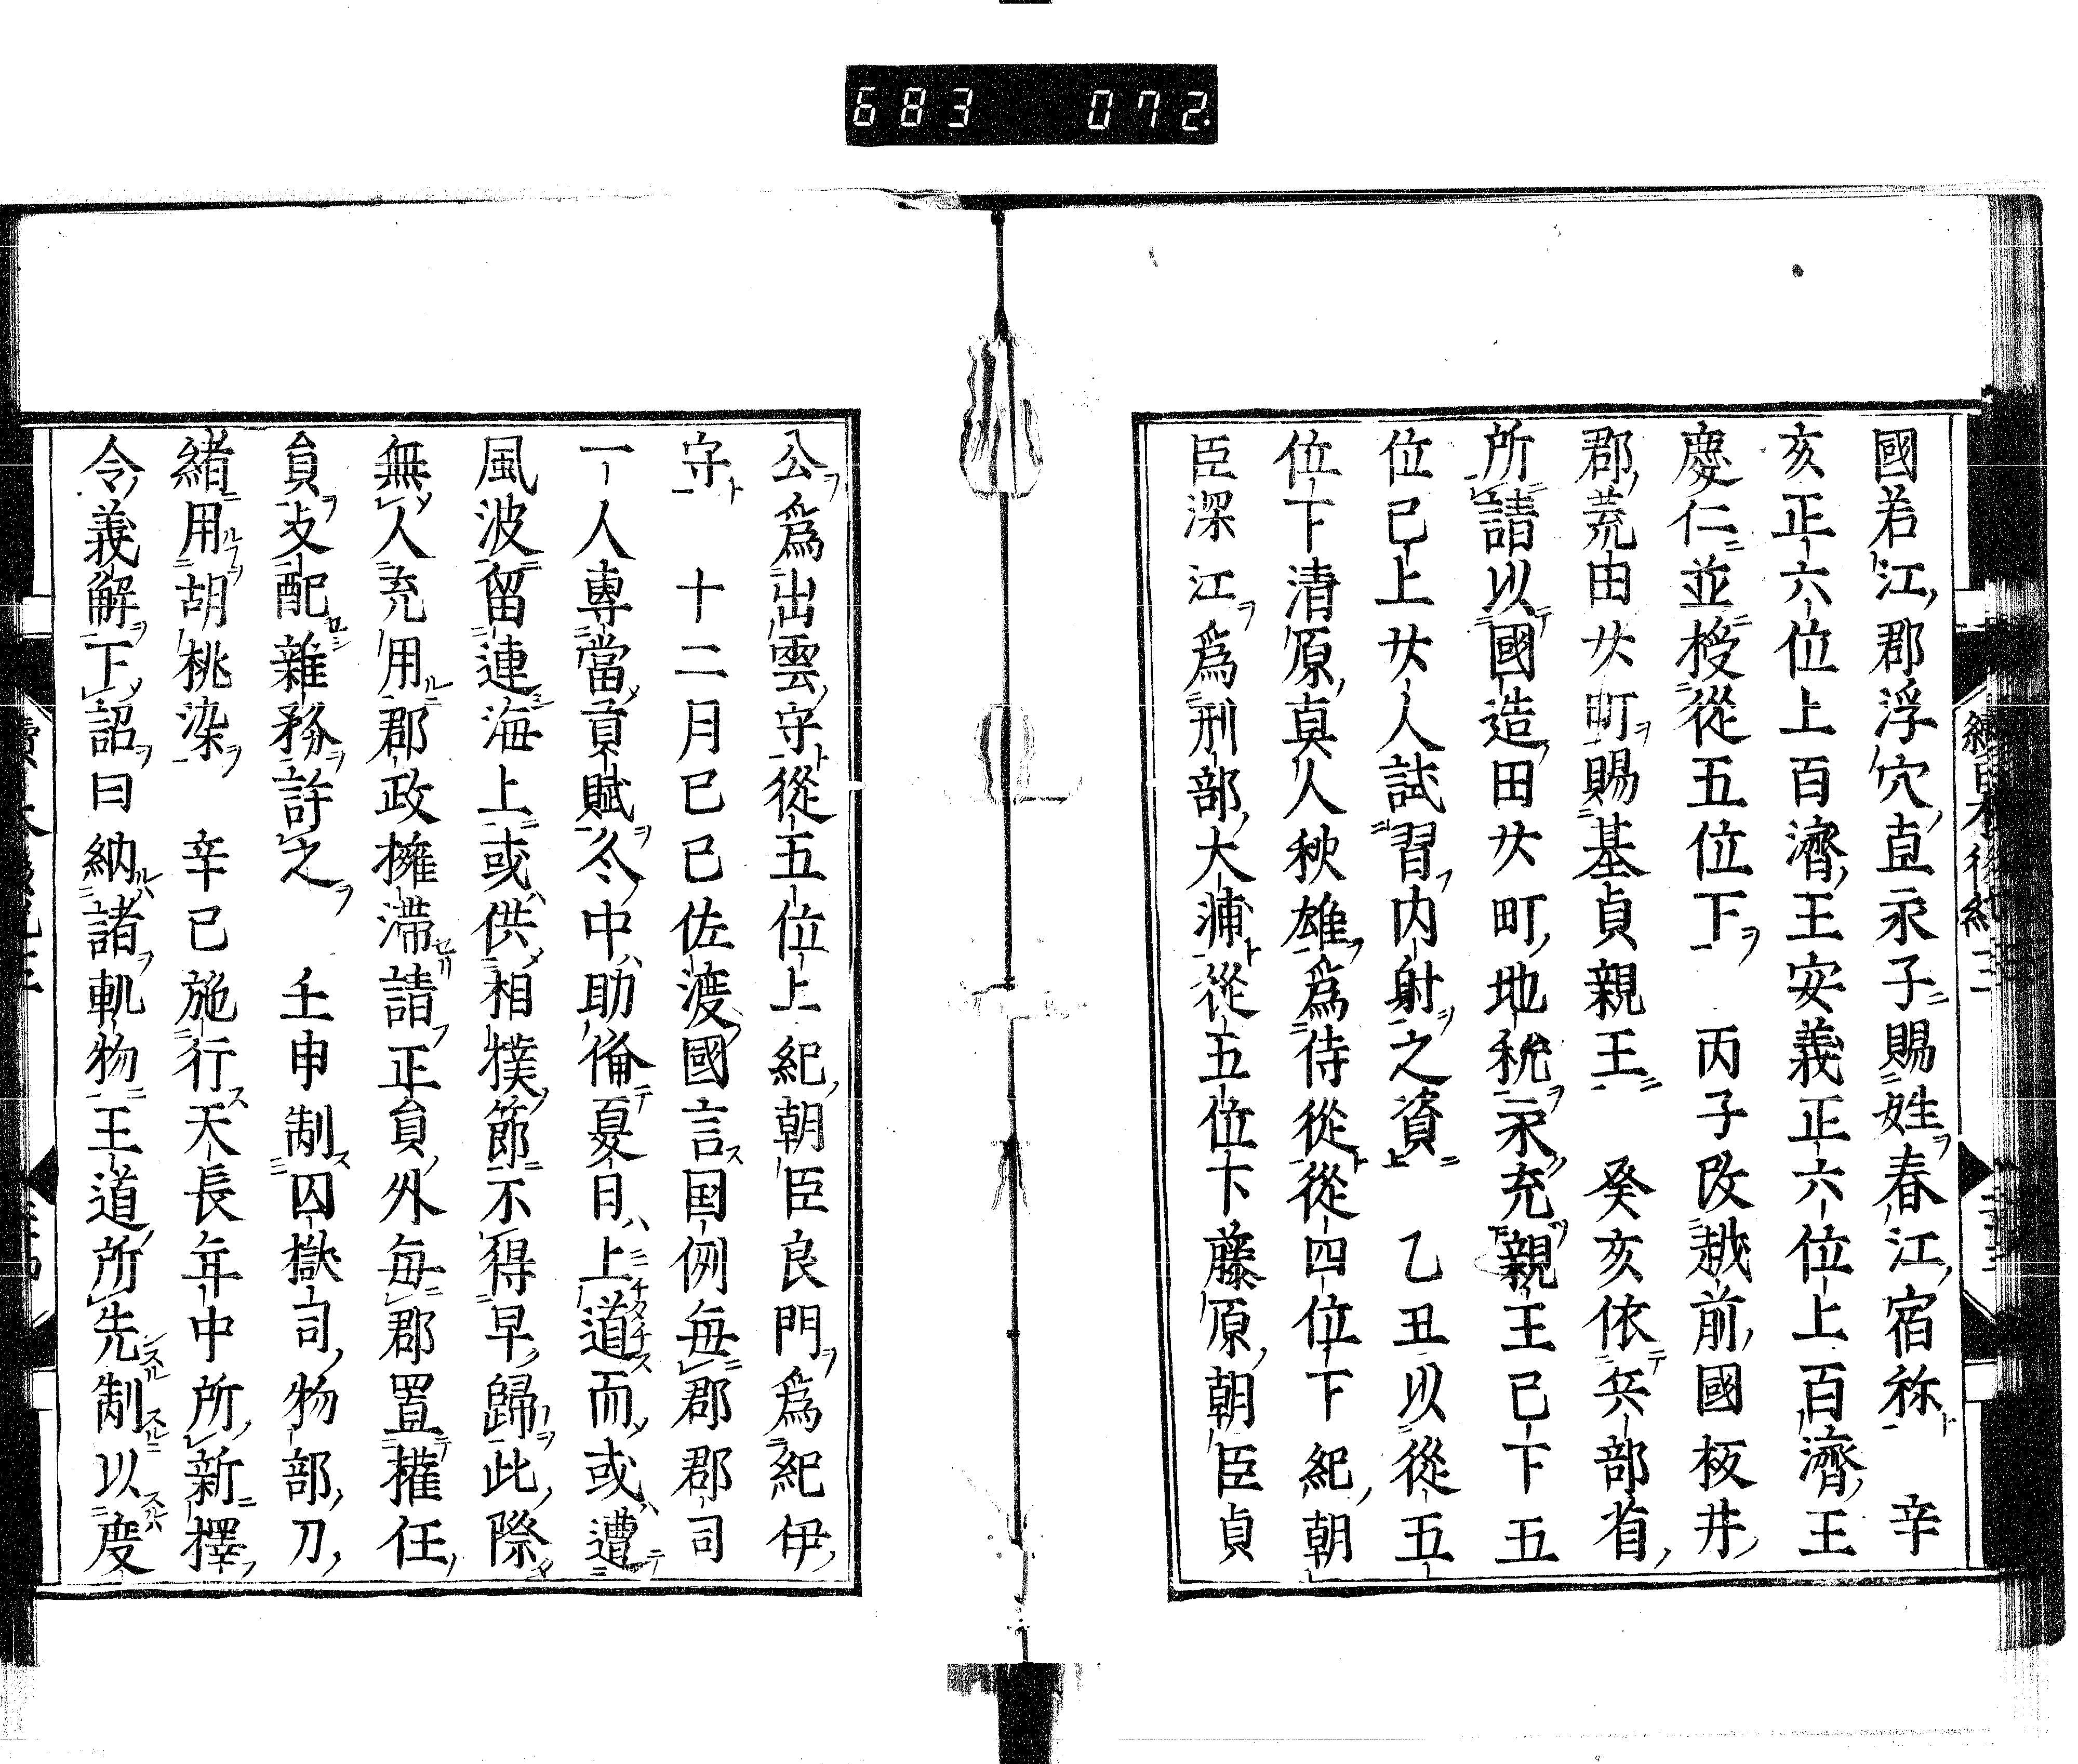 683 072
國若江郡浮穴直永子賜姓春江宿祢　辛
亥正六位上百濟王安義正六位上百濟王
慶仁並授從五位下　丙子改越前國坂井
郡荒田廿町賜基貞親王　癸亥依兵部省
所請以國造田廿町地税永充親王已下五
位已上廿人試習内射之資　乙丑以從五
位下清原真人秋雄爲侍從從四位下紀朝
臣深江爲刑部大輔從五位下藤原朝臣貞
公爲出雲守從五位上紀朝臣良門爲紀伊
守　十二月己巳佐渡國言国例毎郡郡司
一人專當貢賦冬中助備夏日上道而或遭
風波留連海上或供相撲節不得早歸此際
無人充用郡政擁滯請正員外毎郡置權任
員支配雜務許之　壬申制囚獄司物部刀
緒用胡桃染　辛巳施行天長年中所新擇
令義解下詔曰納諸軌物王道所先制以慶